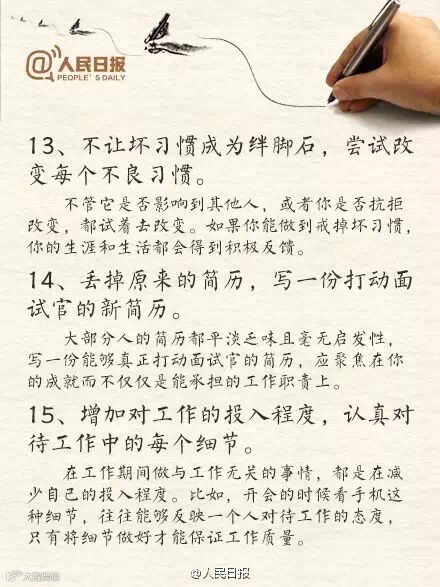 @人民日报
PEOPLE'S DAILY
13、不让坏习惯成为绊脚石，尝试改
变每个不良习惯。
不管它是否影响到其他人，或者你是否抗拒
改变，都试着去改变。如果你能做到戒掉坏习惯，
你的生涯和生活都会得到积极反馈。
14、丢掉原来的简历，写一份打动面
试官的新简历。
大部分人的简历都平淡乏味且毫无启发性，
写一份能够真正打动面试官的简历，应聚焦在你
的成就而不仅仅是能承担的工作职责上。
15、增加对工作的投入程度，认真对
待工作中的每个细节。
在工作期间做与工作无关的事情，都是在减
少自己的投入程度。比如，开会的时候看手机这
种细节，往往能够反映一个人对待工作的态度，
只有将细节做好才能保证工作质量。
@人民日报